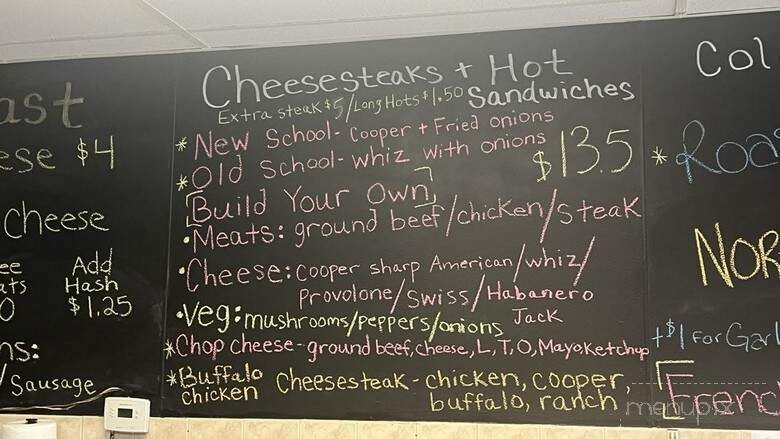 ast
ese $4
Cheese
ee Add
ats Hash
0 $1.25
ns:
/Sausage
Cheesesteaks + Hot
Extra steak $5/Long Hots $1.50 Sandwiches
* New School- Cooper + Fried onions
* Old School- Whiz with onions $13.5
[Build Your Own]
• Meats: ground beef/chicken/steak
• Cheese: Cooper sharp American/whiz/
Provolone/Swiss/Habanero
Jack
• Veg: mushrooms/peppers/onions
* Chop cheese - ground beef, cheese, L, T, O, Mayoketchup
* Buffalo chicken Cheesesteak - chicken, cooper,
buffalo, ranch
Col
* Roa
NOR
+$1 For Garl
Frenc
menupix